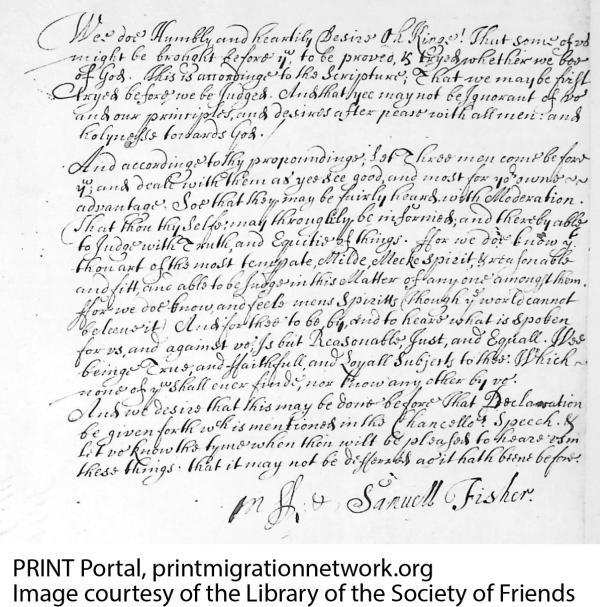 Wee doe Humbly and heartily Desire Oh Kinge! That some of vs
might be brought before yu, to be proved, & Tryed, whether we bee
of God. This is accordinge to the Scripture; That we may be first
Tryed before we be Judged. And that yee may not be Ignorant of vs
and our principles, and desires after peace with all men: and
holynesse towards God.
And accordinge to thy propoundinge, let Three men come before
yu, and deale with them as yee see good, and most for yor owne
advantage. Soe that they may be fairly heard with Moderation.
That thou thy Selfe may throughly be informed, and thereby able
to Judge with Truth, and Equitie of things. ffor we doe know yt
thou art of the most temprate, Milde, Meeke spirit, & reasonable
and fitt, and able to be Judge in this Matter of any one amongst them.
ffor we doe know, and feele mens Spiritts (though ye world cannot
beleeve it) And for thee to be by, and to heare what is spoken
for vs, and against vs; Is but Reasonable, Just, and Equall. Wee
beinge True, and ffaithfull, and Loyall Subjects to thee. Which
none of yu shall ever finde, nor know any other by vs.
And we desire that this may be done before That Declaration
be given forth wch is mentioned in the Chancellors Speech. &
let vs know the tyme when thou will be pleased to heare vs in
these things. that it may not be differred as it hath biene before.
m ff & Samuell Fisher.
PRINT Portal, printmigrationnetwork.org
Image courtesy of the Library of the Society of Friends